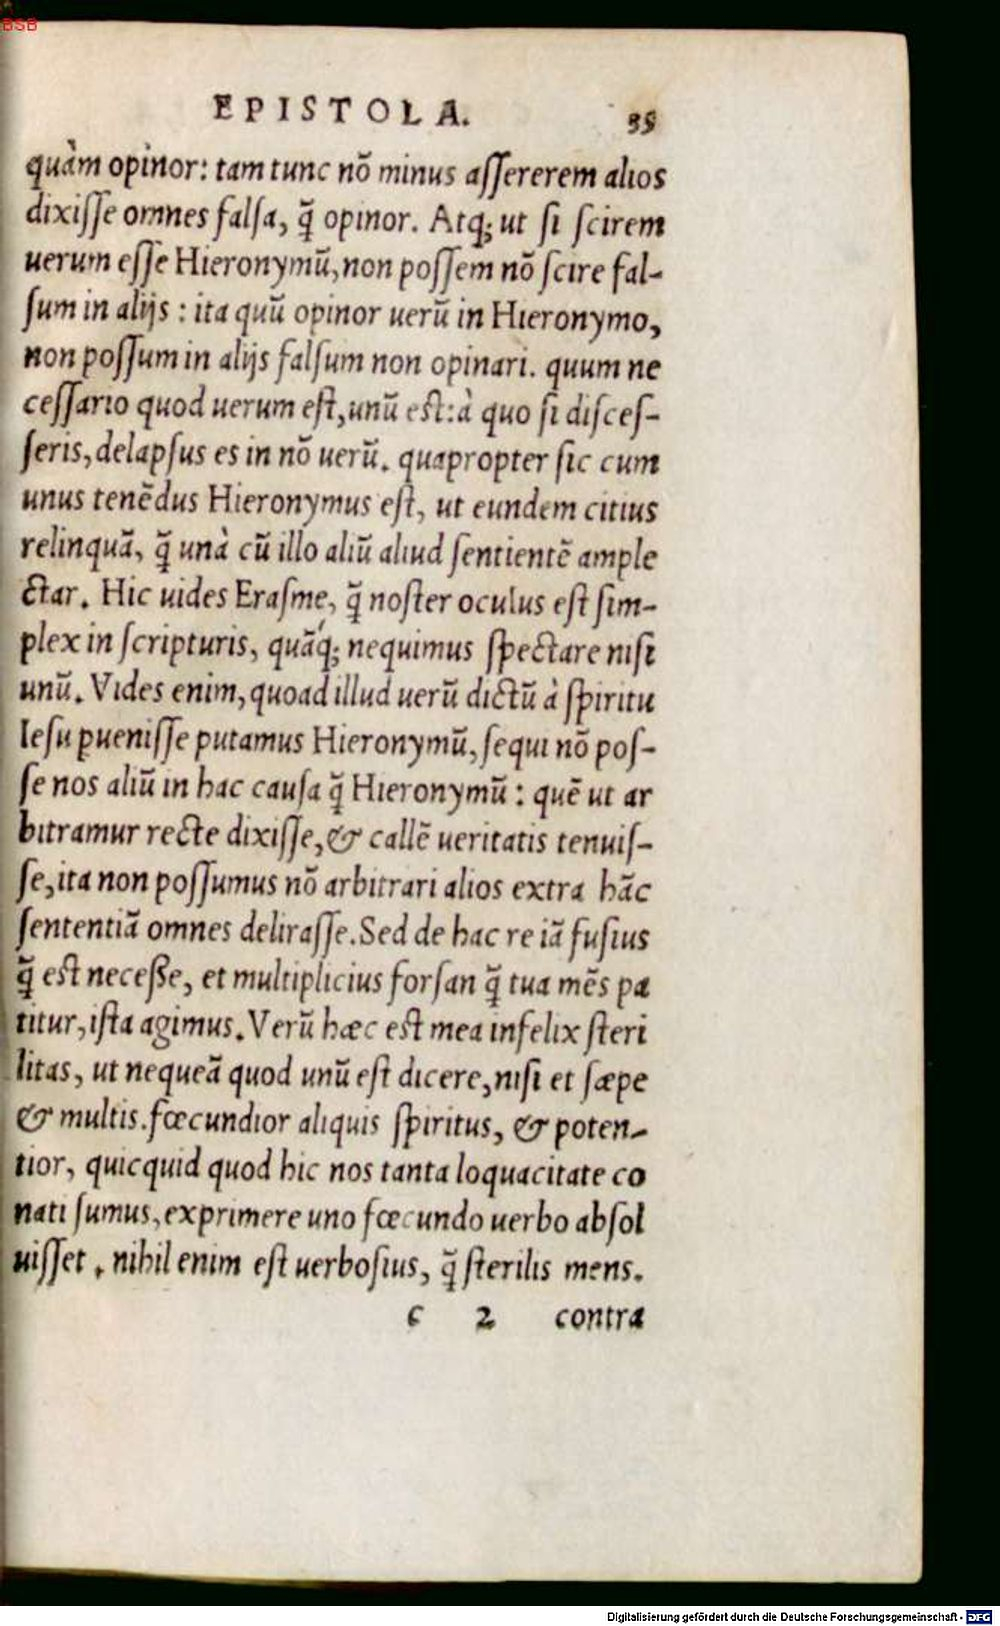 BSB
EPISTOLA. 35
quàm opinor: tam tunc nõ minus aſſererem alios
dixiſſe omnes falſa, q̃ opinor. Atq; ut ſi ſcirem
uerum eſſe Hieronymũ, non poſſem nõ ſcire fal-
ſum in alijs : ita quũ opinor uerũ in Hieronymo,
non poſſum in alijs falſum non opinari. quum ne
ceſſario quod uerum eſt, unũ eſt: à quo ſi diſceſ-
ſeris, delapſus es in nõ uerũ. quapropter ſic cum
unus tenẽdus Hieronymus eſt, ut eundem citius
relinquã, q̃ unà cũ illo aliũ aliud ſentientẽ ample
ctar. Hic uides Eraſme, q̃ noſter oculus eſt ſim-
plex in ſcripturis, quãq́; nequimus ſpectare niſi
unũ. Vides enim, quoad illud uerũ dictũ à ſpiritu
Ieſu ꝑueniſſe putamus Hieronymũ, ſequi nõ poſ-
ſe nos aliũ in hac cauſa q̃ Hieronymũ : quẽ ut ar
bitramur recte dixiſſe, & callẽ ueritatis tenuiſ-
ſe, ita non poſſumus nõ arbitrari alios extra hãc
ſententiã omnes deliraſſe. Sed de hac re iã fuſius
q̃ eſt neceſſe, et multiplicius forſan q̃ tua mẽs pa
titur, iſta agimus. Verũ hæc eſt mea infelix ſteri
litas, ut nequeã quod unũ eſt dicere, niſi et ſæpe
& multis. fœcundior aliquis ſpiritus, & poten-
tior, quicquid quod hic nos tanta loquacitate co
nati ſumus, exprimere uno fœcundo uerbo abſol
uiſſet. nihil enim eſt uerboſius, q̃ ſterilis mens.
c 2 contra
Digitalisierung gefördert durch die Deutsche Forschungsgemeinschaft - DFG